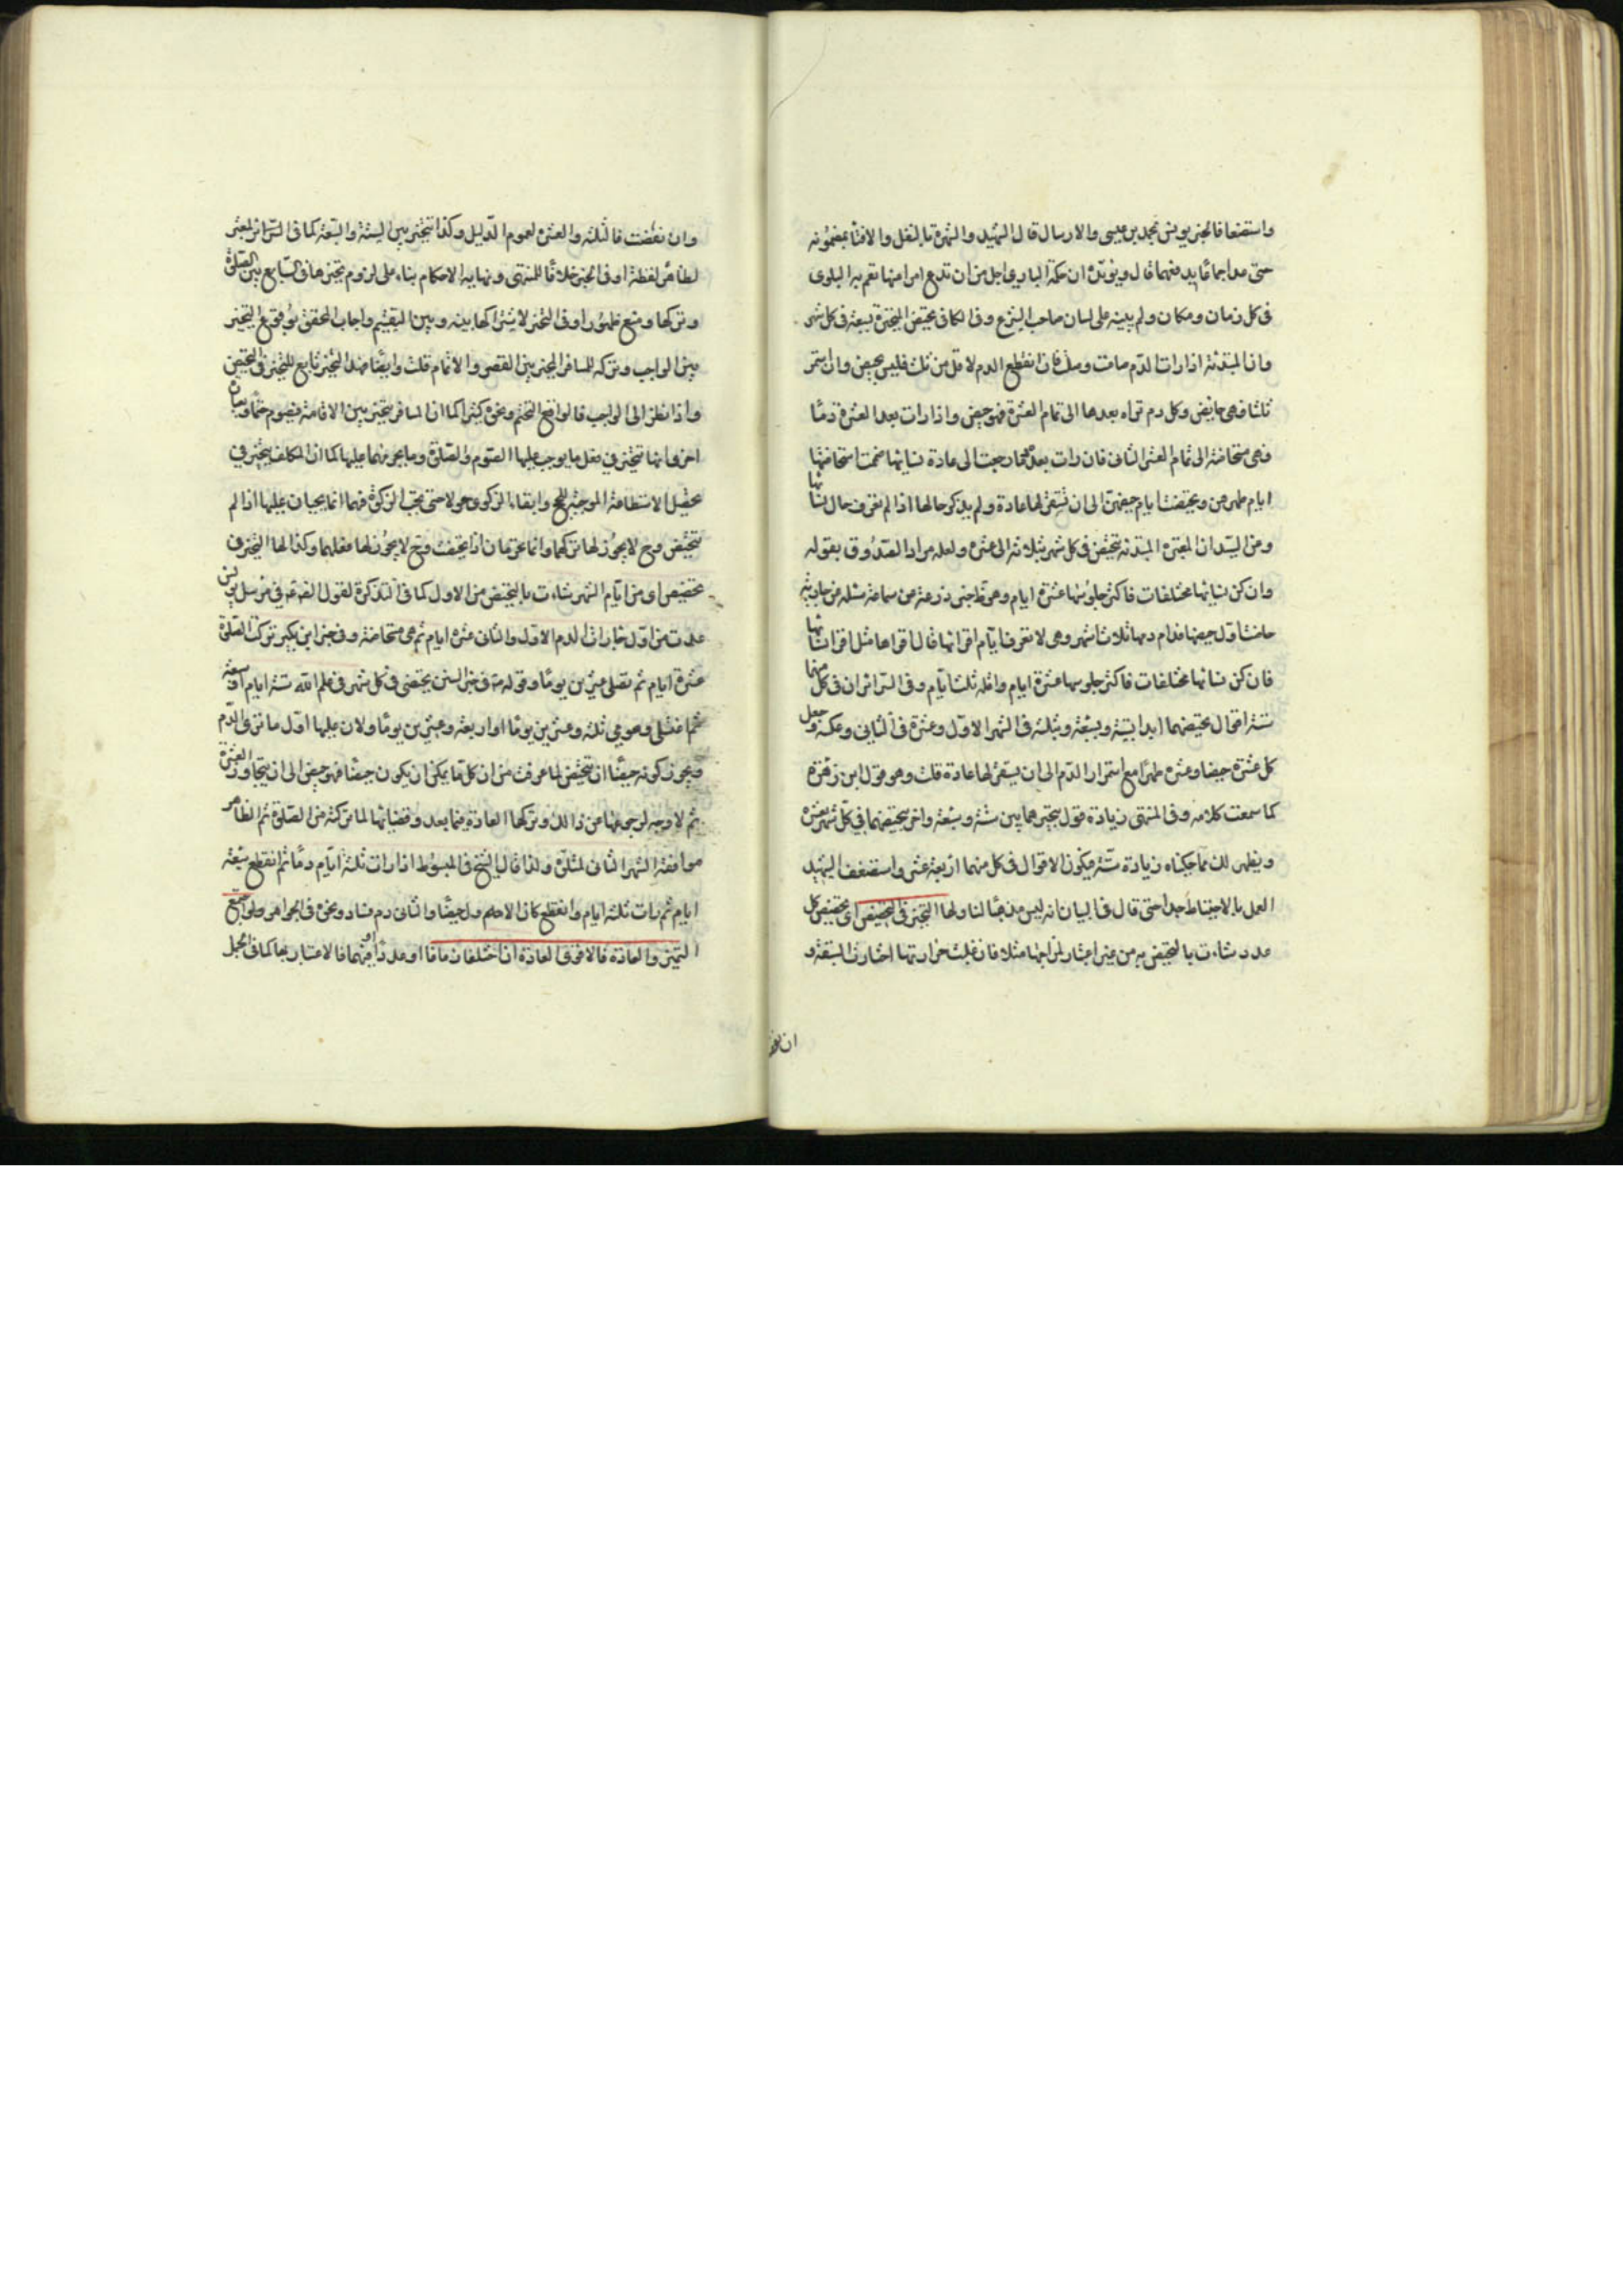 واستضعافا لخبر يونس بمحمد بن عيسى والارسال قال الشهيد والشهرة بالنقل والافتاء بمضمونه
حتى عد اجماعا يدفعهما قال ويؤيده ان حكمة الباري اجل من ان تدع امرا مبهما تعم به البلوى
في كل زمان ومكان ولم يبينه على لسان صاحب الشرع وفى الكافى تحيض المتحيرة بسبعة فى كل شهر
وان المبتدئة اذا رات الدم صامت وصلت فان انقطع الدم لاقل من ثلث فليس بحيض وان استمر
ثلثا فهى حايض وكل دم تراه بعدها الى تمام العشرة فهو حيض واذا رات بعد العشرة دما
فهى مستحاضة الى تمام العشر الثانى فان رات بعدهما رجعت الى عادة نسايها ضمت استحاضتها
ايام طهرهن وتحيضت ايام حيضهن الى ان تستقر لها عادة ولم يذكر حالها اذا لم تعرف حال نسائها
وعن السيد ان المبتدئة تتحيض فى كل شهر بثلاثة الى عشرة ولعله مراد الصدوق بقوله
وان كن نسايها مختلفات فاكثر جلوسها عشرة ايام وهو خبر زرعة عن سماعة سئله عن جارية
حاضت اول حيضها فدام دمها ثلاث اشهر وهى لا تعرف ايام اقرائها قال اقراها مثل اقراء نسائها
فان كن نسائها مختلفات فاكثر جلوسها عشرة ايام واقله ثلثة ايام وفى السرائر ان فى كل منهما
ستة اقوال تحيضهما ابدا بستة وبسبعة وبثلثة فى الشهر الاول وعشرة فى الثانى وعكسه وجعل
كل عشرة حيضا وعشرة طهرا مع استمرار الدم الى ان يستقر لها عادة قلت وهو قول ابن زهرة
كما سمعت كلامه وفى المنتهى زيادة قول بتخيرهما بين ستة وسبعة واخر بتحيضهما فى كل شهر بعشرة
ويظهر لك مما حكيناه زيادة ستة فيكون الاقوال فى كل منهما اربعة عشر واستضعف الشهيد
العمل بالاحتياط جدا حتى قال فى البيان انه ليس مذهبا لنا ولها التخير فى التخصيص اى تخصيص كل
عدد شاءت بالتحيض به من غير اعتبار لمزاجها مثلا فان غلبت حرارتها اختارت السبعة و
ان نقصت
وان نقصت فالثلثة والعشرة لعموم الدليل وكذا تتخير بين الستة والسبعة كما فى السرائر والمعتبر
لظاهر لفظة او فى الخبر خلافا للمنتهى ونهاية الاحكام بناء على لزوم تخيرها فى السابع بين الصلوة
وتركها ومنع ظهور او فى التخير لاشتراكها بينه وبين التقسيم واجاب المحقق بوقوع التخير
بين الواجب وتركه للمسافر المخير بين القصر والاتمام قلت وايضا هذا التخير تابع للتخير فى التحيض
واذا نظر الى الواجب فالواقع التحتم ونحوه كثير كما ان المسافر يتخير بين الاقامة فيصوم حتما وبيان
اخر انما تتخير فى فعل ما يوجب عليها الصوم والصلوة وما يحرمهما عليها كما ان المكلف يتخير فى
تحصيل الاستطاعة الموجبة للحج وابقاء الزكوى حولا حتى تجب الزكوة فهما انما يجبان عليها اذا لم
تتحيض وح لا يجوز لها تركهما وانما يحرمان اذا تحيضت وح لا يجوز لها فعلهما وكذا لها التخير فى
تخصيص اى من ايام الشهر شاءت بالتحيض من الاول كما فى التذكرة لقول الصادق فى مرسل يونس
عدت من اول ما رات الدم الاول والثانى عشرة ايام ثم هى مستحاضة وفى خبر ابن بكير تركت الصلوة
عشرة ايام ثم تصلى عشرين يوما وقوله فى خبر السنن تحيضى فى كل شهر فى علم الله ستة ايام او سبعة
ثم اغتسلى وصومى ثلثة وعشرين يوما او اربعة وعشرين يوما ولان عليها اول ما ترى الدم
ويجوز كونه حيضا ان تتحيض لما عرفت من ان كل ما يمكن ان يكون حيضا فهو حيض الى ان يتجاوز العشرة
ثم لا وجه لرجوعها عن ذلك وتركها العادة فيما بعد وقضائها لما تركته من الصلوة ثم الظاهر
موافقة الشهر الثانى لمتلوه ولذا قال الشيخ فى المبسوط اذا رات ثلثة ايام دما ثم انقطع سبعة
ايام ثم رات ثلثة ايام وانقطع كان الاول حيضا والثانى دم فساد ونحوه فى الجواهر ولو اجتمع
التميز والعادة فالاقوى العادة ان اختلفا زمانا او عددا او فيهما فالاعتبار بها كما فى الجمل